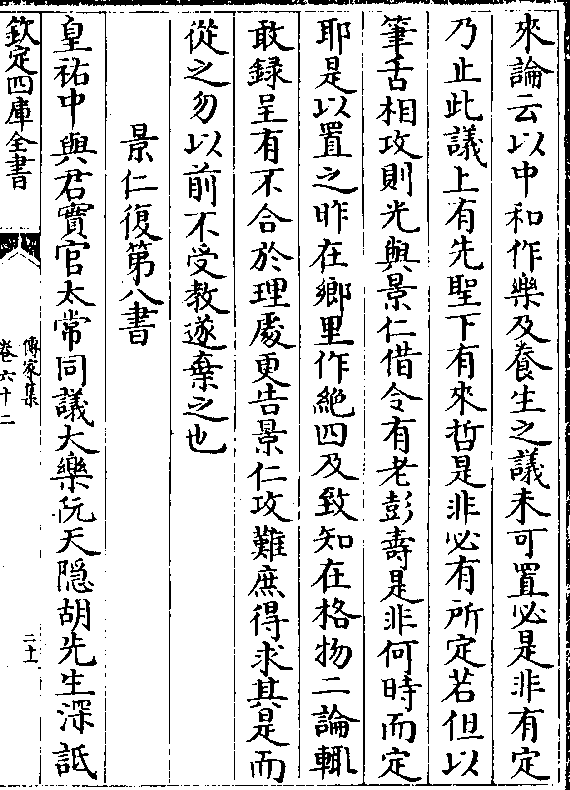 來論云以中和作樂及養生之議未可置必是非有定
乃止此議上有先聖下有來哲是非必有所定若但以
筆舌相攻則光與景仁借令有老彭壽是非何時而定
耶是以置之昨在鄉里作絶四及致知在格物二論輙
敢録呈有不合於理處更告景仁攻難庶得求其是而
從之勿以前不受教遂棄之也
景仁復第八書
皇祐中與君實官太常同議大樂阮天隠胡先生深詆
欽定四庫全書
傳家集
卷六十二
二十